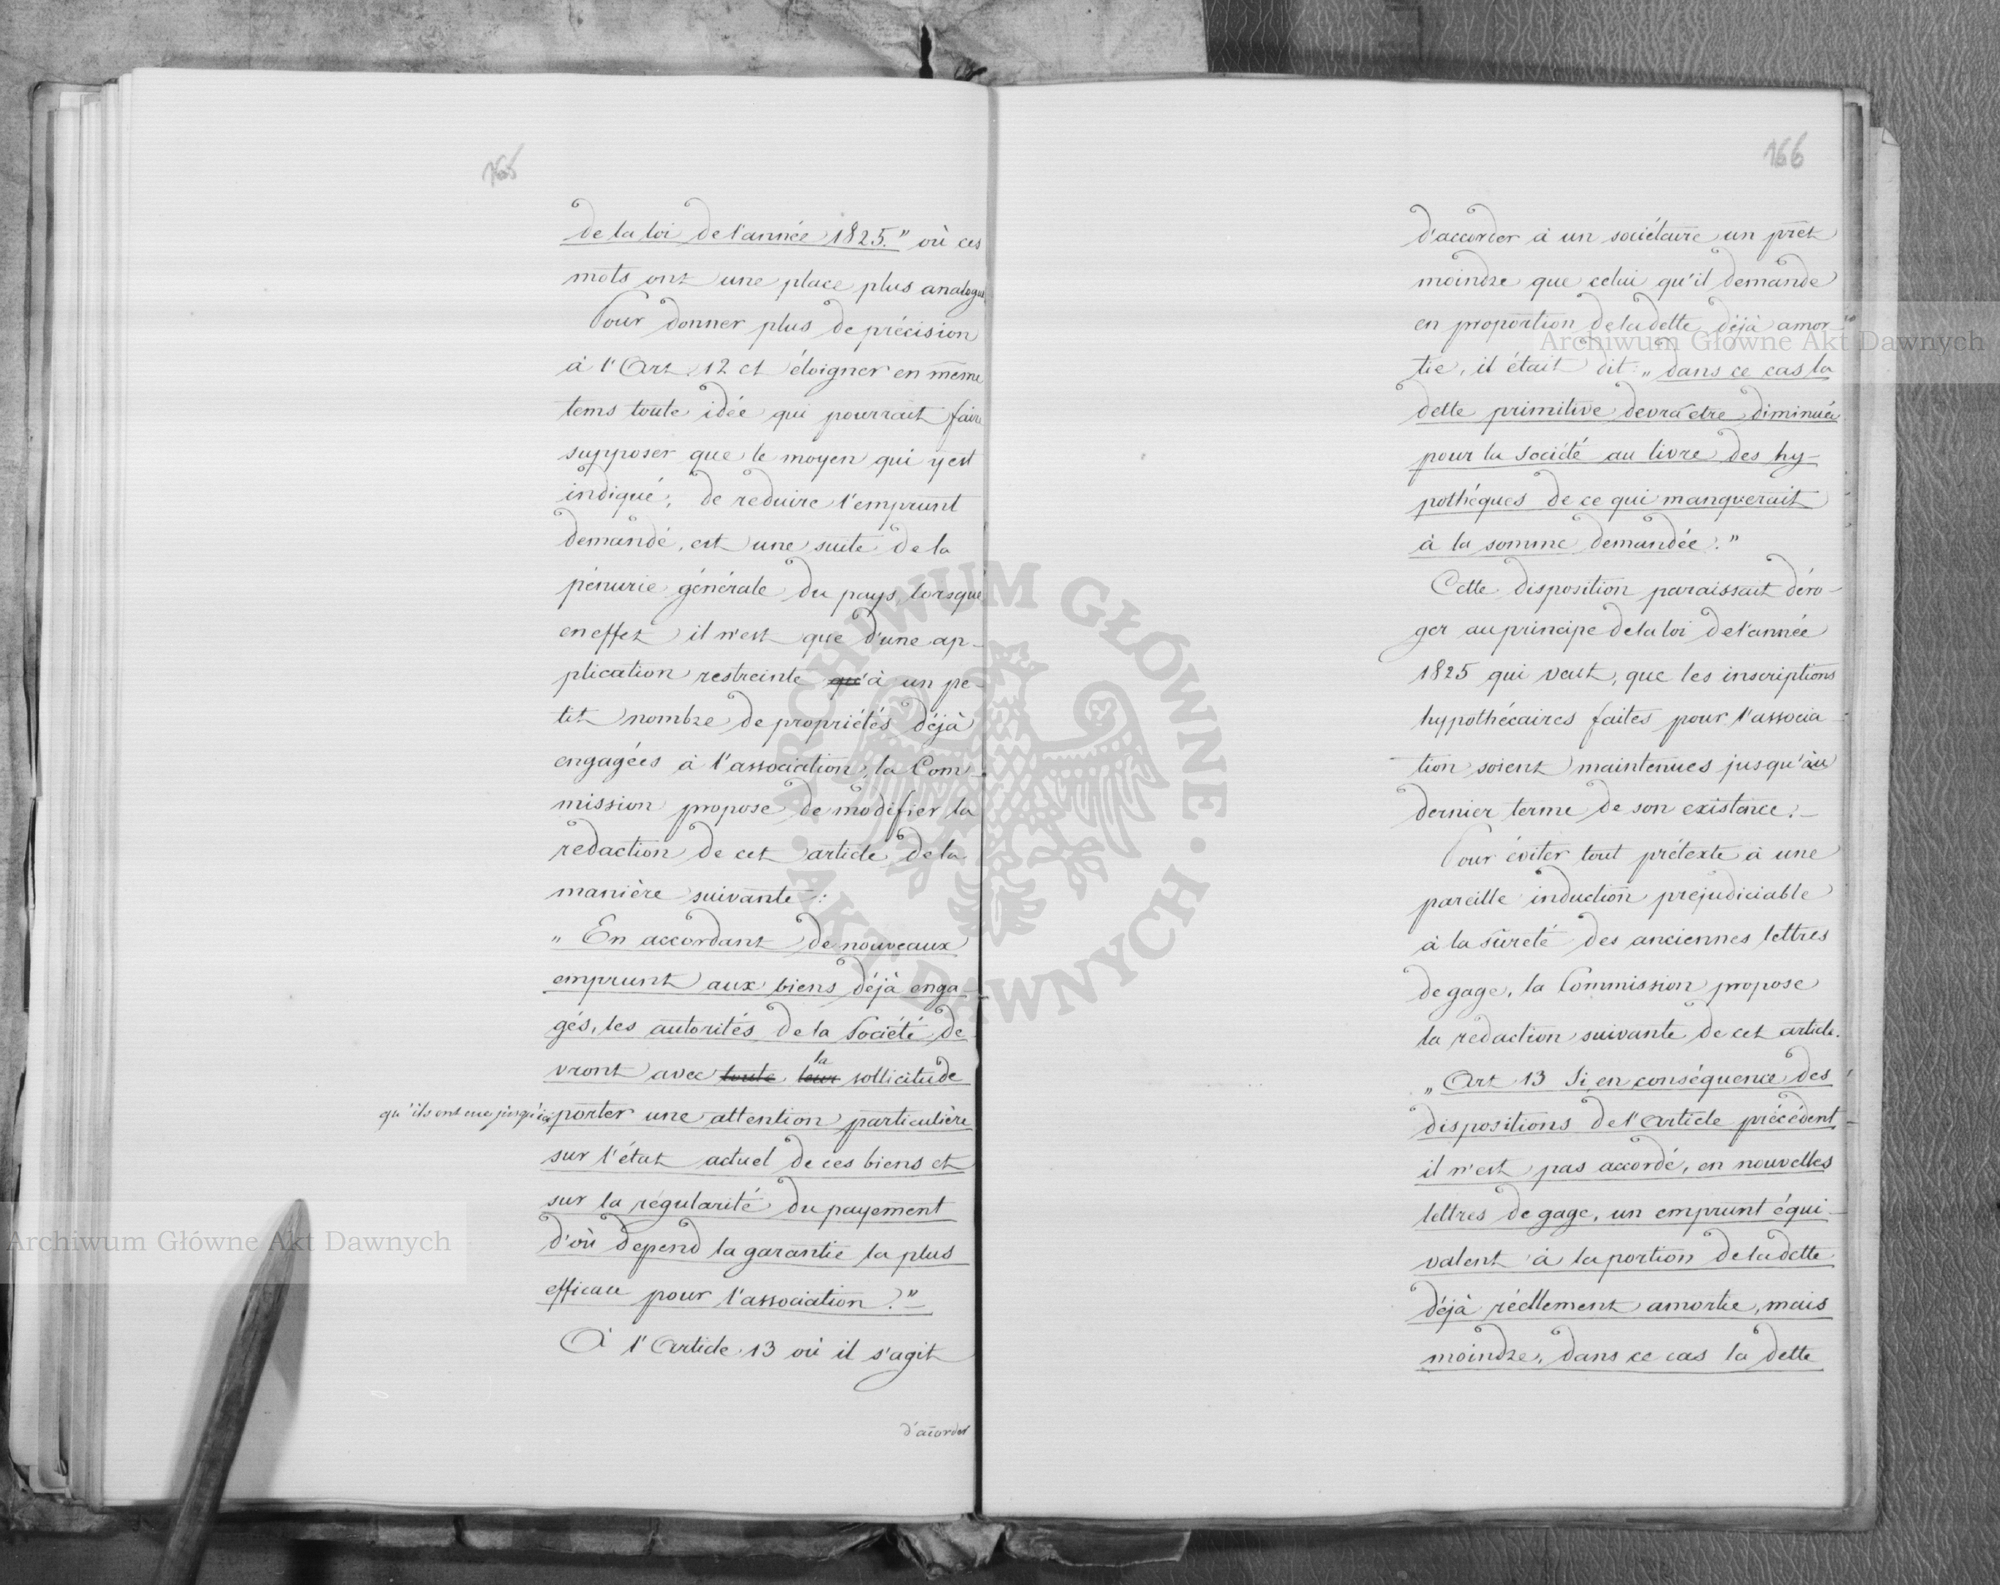 165
de la loi de l'année 1825." où ces
mots ont une place plus analogue
Pour donner plus de précision
à l'Art. 12 et éloigner en même
tems toute idée qui pourrait faire
supposer que le moyen qui y est
indiqué, de reduire l'emprunt
demandé, est une suite de la
pénurie générale du pays, lorsque
en effet il n'est que d'une ap-
plication restreinte qu'à un pe-
tit nombre de propriétés déjà
engagées à l'association, la Com-
mission propose de modifier la
redaction de cet article de la
manière suivante:
"En accordant de nouveaux
emprunt aux biens déjà enga-
gés, les autorités de la Société de-
la
vront avec toute leur sollicitude
qu'ils ont eue jusqu'ici porter une attention particulière
sur l'état actuel de ces biens et
sur la régularité du payement
d'où dépend la garantie la plus
efficace pour l'association."
À l'Article 13 où il s'agit
d'accorder
166
d'accorder à un sociétaire un prêt
moindre que celui qu'il demande
en proportion de la dette déjà amor-
tie, il était dit "dans ce cas la
dette primitive devra être diminuée
pour la société au livre des hy-
pothéques de ce qui manquerait
à la somme demandée."
Cette disposition paraissait déro-
ger au principe de la loi de l'année
1825 qui veut, que les inscriptions
hypothécaires faites pour l'associa-
tion soient maintenues jusqu'au
dernier terme de son existence.-
Pour éviter tout prétexte à une
pareille induction préjudiciable
à la sûreté des anciennes lettres
de gage, la Commission propose
la redaction suivante de cet article.
"Art 13 Si en conséquence des
dispositions de l'Article précédent
il n'est pas accordé, en nouvelles
lettres de gage, un emprunt équi-
valent à la portion de la dette
déjà réellement amortie, mais
moindre, dans ce cas la dette
Archiwum Główne Akt Dawnych
Archiwum Główne Akt Dawnych
ARCHIWUM GŁÓWNE AKT DAWNYCH